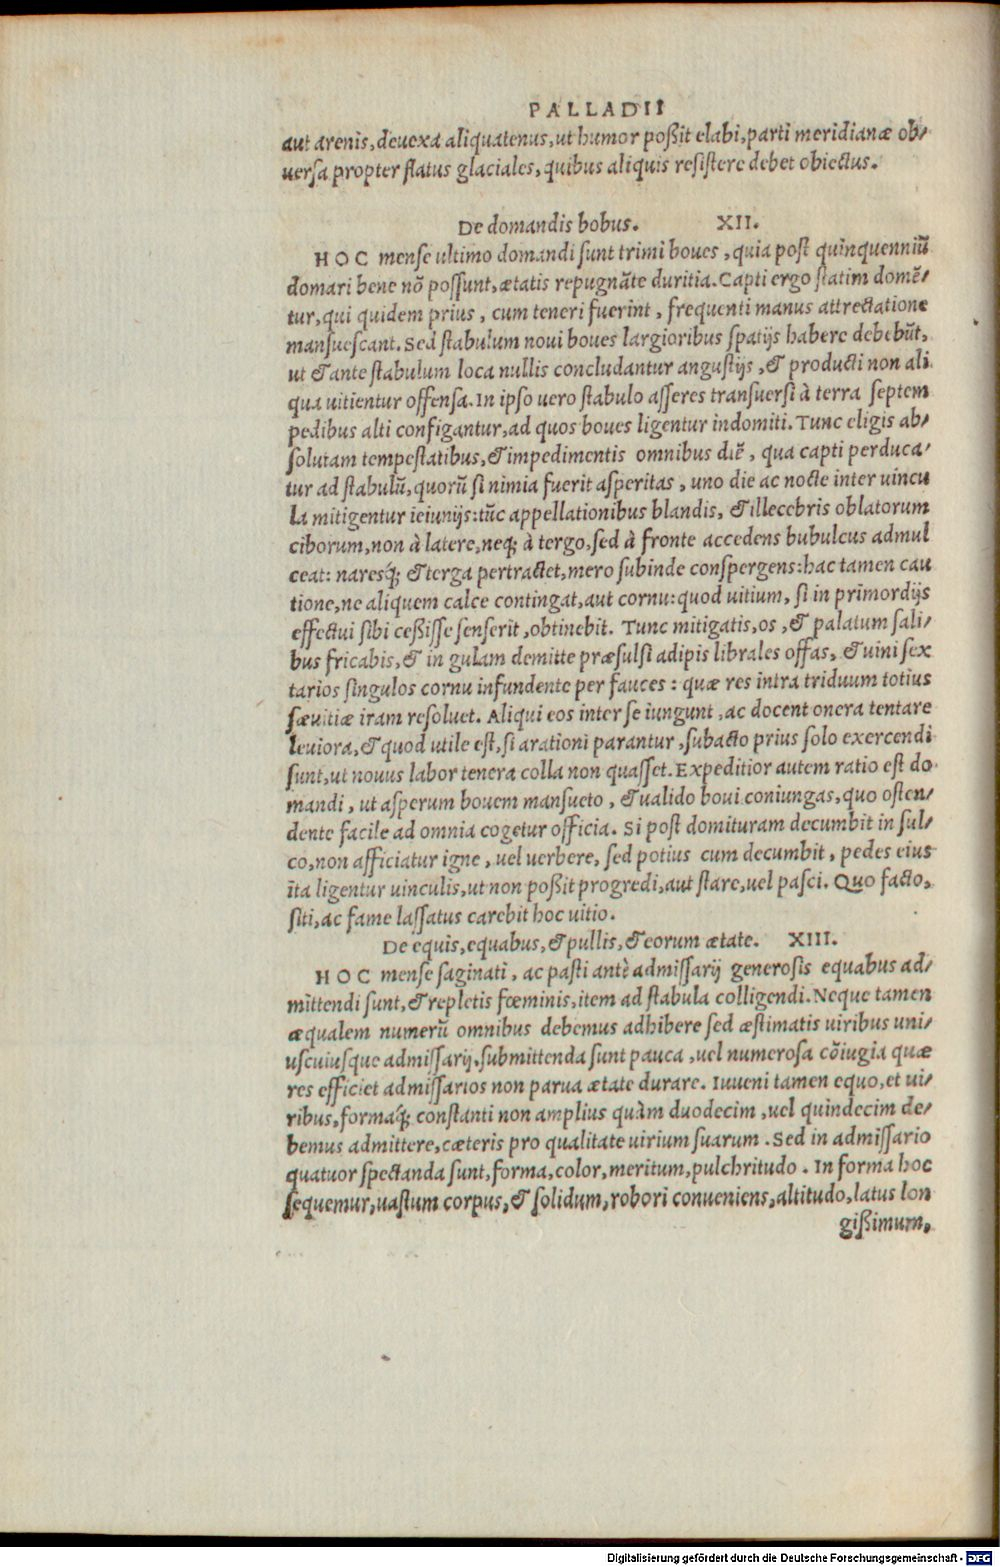 PALLADII
aut arenis, deuexa aliquatenus, ut humor poßit elabi, parti meridianæ ob/
uersa propter flatus glaciales, quibus aliquis resistere debet obiectus.
De domandis bobus. XII.
HOC mense ultimo domandi sunt trimi boues, quia post quinquenniũ
domari bene nõ possunt, ætatis repugnãte duritia. Capti ergo statim domẽ/
tur, qui quidem prius, cum teneri fuerint, frequenti manus attrectatione
mansuescant. Sed stabulum noui boues largioribus spatijs habere debebũt,
ut & ante stabulum loca nullis concludantur angustijs, & producti non ali
qua uitientur offensa. In ipso uero stabulo asseres transuersi à terra septem
pedibus alti configantur, ad quos boues ligentur indomiti. Tunc eligis ab/
solutam tempestatibus, & impedimentis omnibus diẽ, qua capti perduca/
tur ad stabulũ, quorũ si nimia fuerit asperitas, uno die ac nocte inter uincu
la mitigentur ieiunijs: tũc appellationibus blandis, & illecebris oblatorum
ciborum, non à latere, neq; à tergo, sed à fronte accedens bubulcus admul
ceat: naresq́; & terga pertractet, mero subinde conspergens: hac tamen cau
tione, ne aliquem calce contingat, aut cornu: quod uitium, si in primordijs
effectui sibi ceßisse senserit, obtinebit. Tunc mitigatis, os, & palatum sali/
bus fricabis, & in gulam demitte præsulsi adipis librales offas, & uini sex
tarios singulos cornu infundente per fauces: quæ res intra triduum totius
sæuitiæ iram resoluet. Aliqui eos inter se iungunt, ac docent onera tentare
leuiora, & quod utile est, si arationi parantur, subacto prius solo exercendi
sunt, ut nouus labor tenera colla non quasset. Expeditior autem ratio est do
mandi, ut asperum bouem mansueto, & ualido boui coniungas, quo osten/
dente facile ad omnia cogetur officia. Si post domituram decumbit in sul/
co, non afficiatur igne, uel uerbere, sed potius cum decumbit, pedes eius
ita ligentur uinculis, ut non poßit progredi, aut stare, uel pasci. Quo facto,
siti, ac fame lassatus carebit hoc uitio.
De equis, equabus, & pullis, & eorum ætate. XIII.
HOC mense saginati, ac pasti antè admissarij generosis equabus ad/
mittendi sunt, & repletis fœminis, item ad stabula colligendi. Neque tamen
æqualem numerũ omnibus debemus adhibere sed æstimatis uiribus uni/
uscuiusque admissarij, submittenda sunt pauca, uel numerosa cõiugia quæ
res efficiet admissarios non parua ætate durare. Iuueni tamen equo, et ui/
ribus, formaq́; constanti non amplius quàm duodecim, uel quindecim de/
bemus admittere, cæteris pro qualitate uirium suarum. Sed in admissario
quatuor spectanda sunt, forma, color, meritum, pulchritudo. In forma hoc
sequemur, uastum corpus, & solidum, robori conueniens, altitudo, latus lon
gißimum,
Digitalisierung gefördert durch die Deutsche Forschungsgemeinschaft - DFG